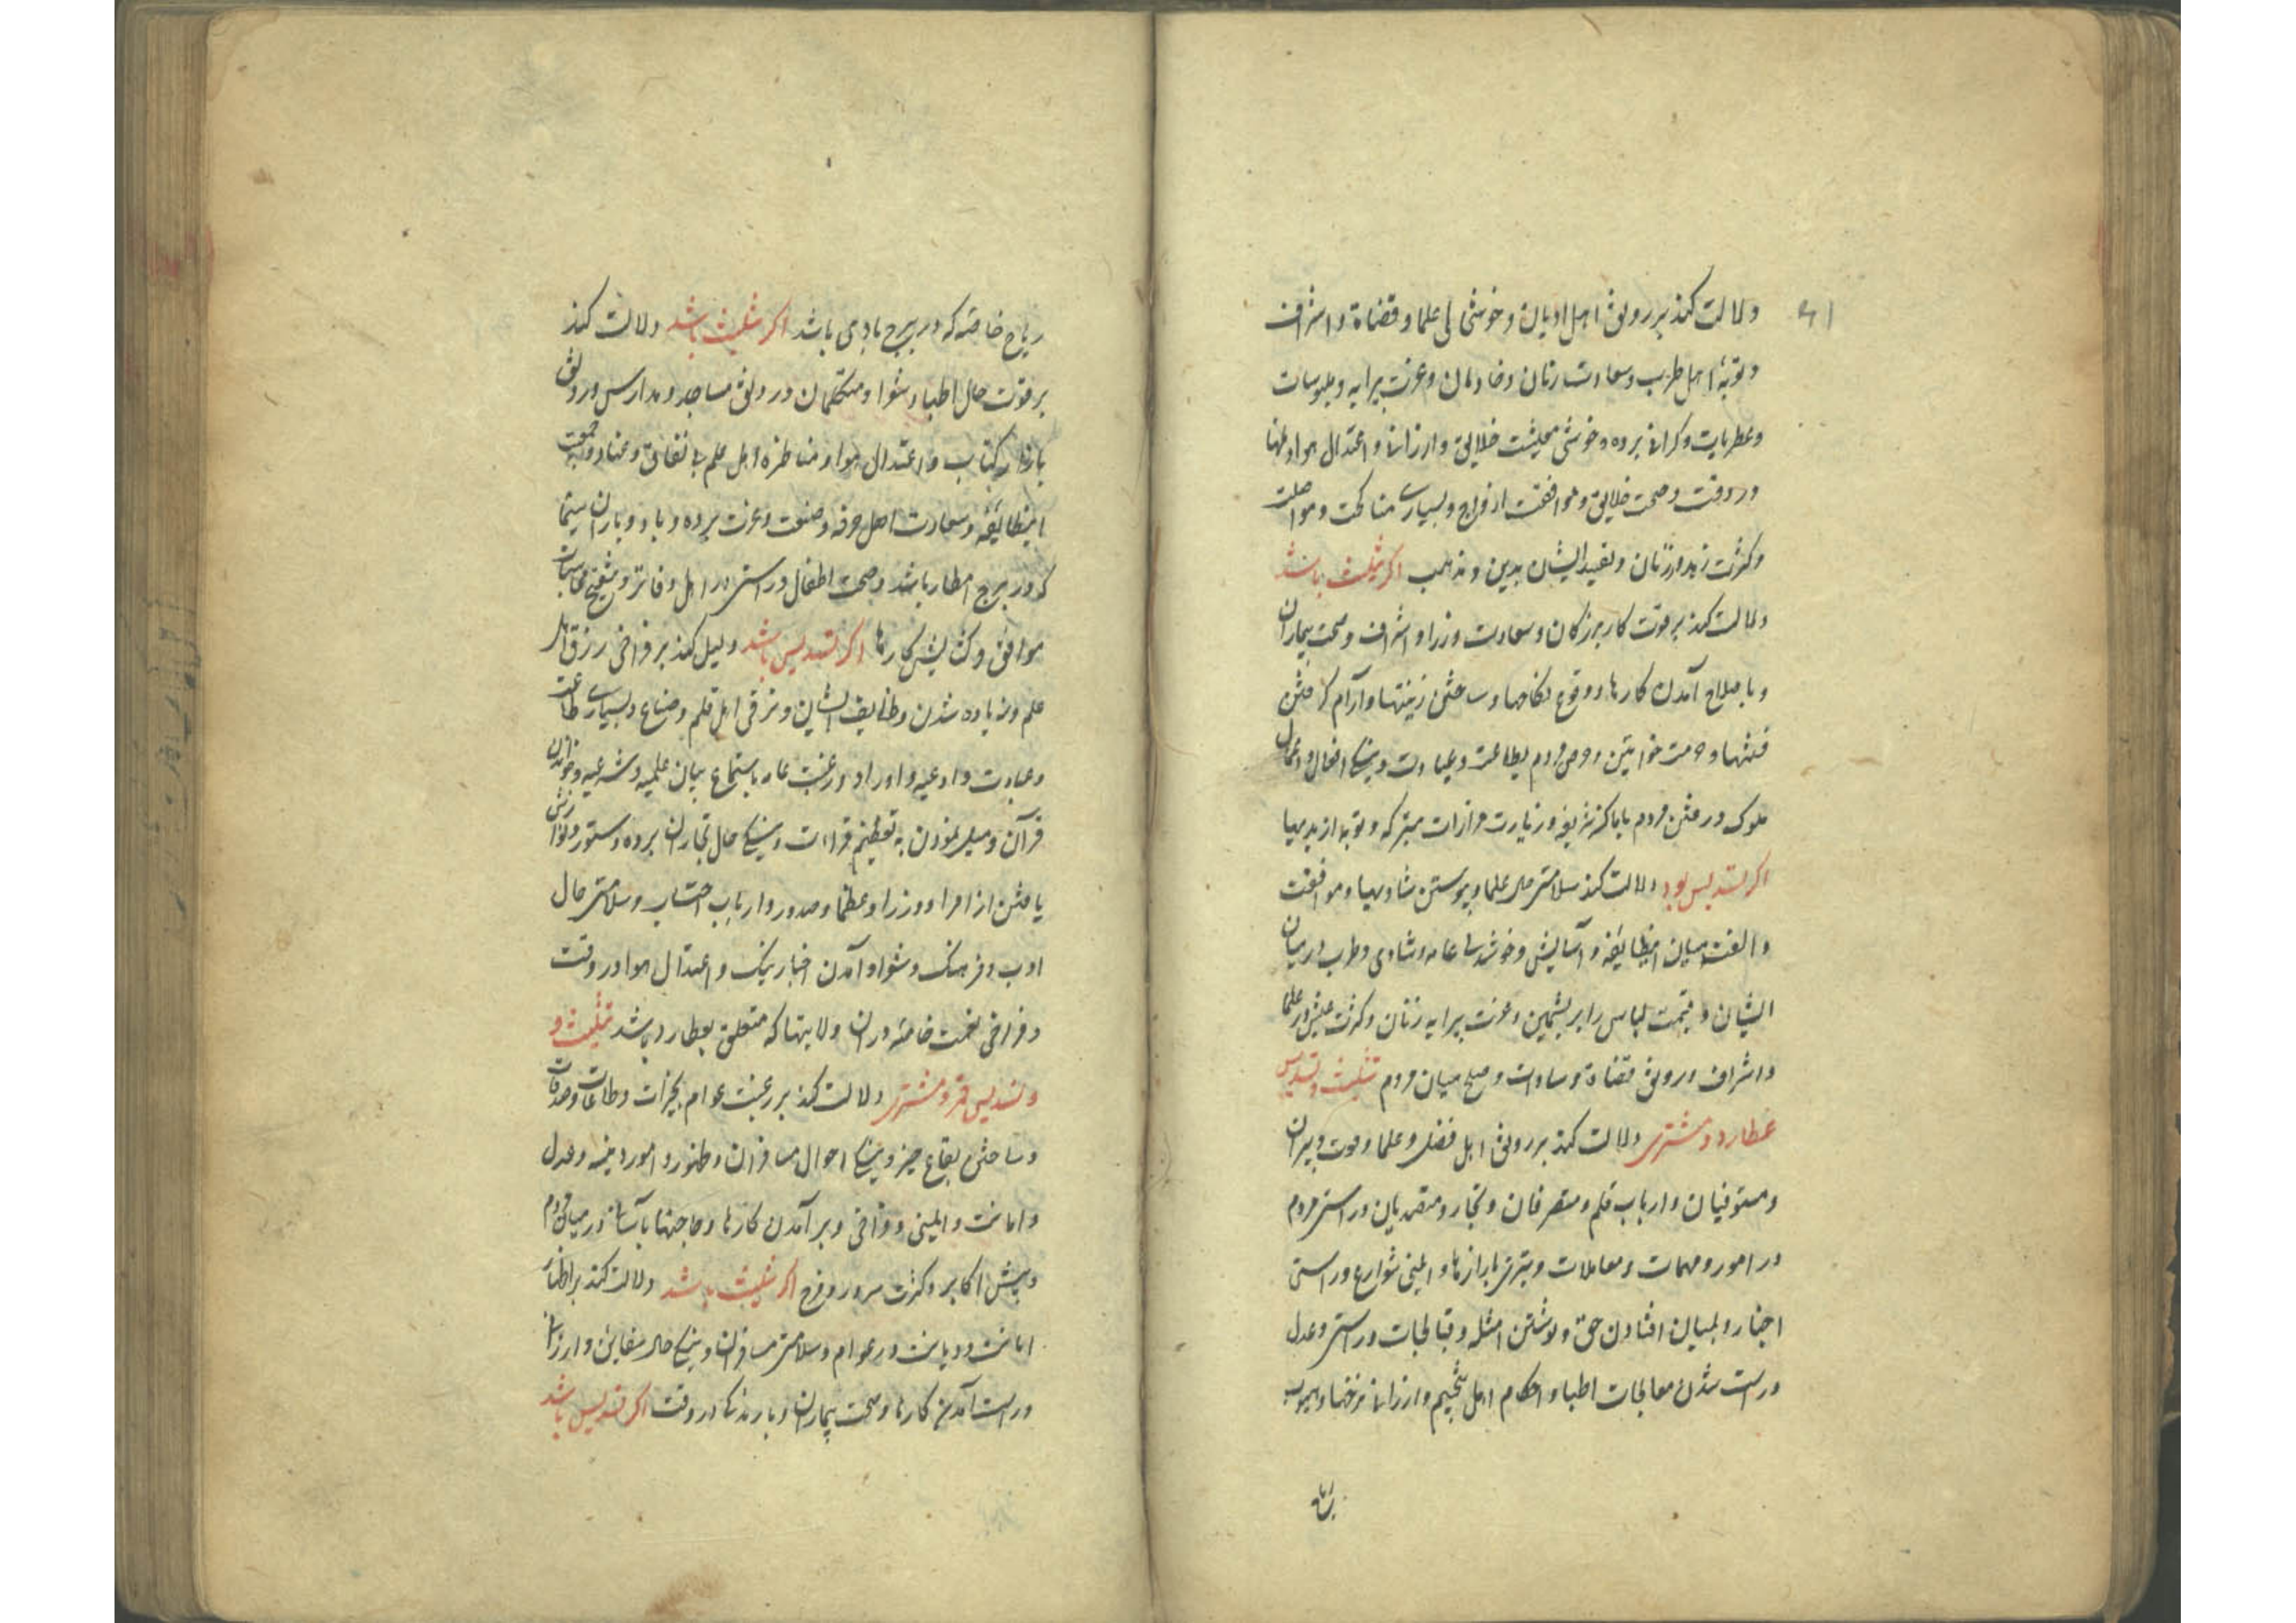 دلالت کند بر رونق اهل ادیان و خوشی علما و قضاة و اشراف
و توبهٔ اهل طرب و سعادت زنان و خادمان و عزت پیرایه و ملبوسات
و عطریات و کرانی برده و خوشی معیشت خلایق و ارزانی و اعتدال هوا
در وقت و صحت خلایق و موافقت ازواج و بسیاری مناکحت و مواصلت
و کثرت زهد زنان و تقید ایشان بدین و مذهب اکر تثلیث باشد
دلالت کند بر قوت کار بزرکان و سعادت وزرا و اشراف و صحت بیماران
و باصلاح آمدن کارها و وقوع نکاحها و ساختن زینتها و آرام کرفتن
فتنها و حرمت خواتین و حرص مردم بطاعت و عبادت و نیکی افعال و اعمال
ملوک و رفتن مردم باماکن شریفه و زیارت مزارات متبرکه و توبه از بدیها
اکر تسدیس بود دلالت کند سلامتی حال علما و پیوستن شادیها و موافقت
و الفت میان اینطایفه و آسایش و خوشدلی عامه و شادی و طرب در میان
ایشان و قیمت لباس را بریشمین و عزت پیرایه زنان و کثرت عیش در علما
و اشراف و رونق قضاة و سادات و صلح میان مردم تثلیث و تسدیس
عطارد و مشتری دلالت کند بر رونق اهل فضل و علما و قوت دبیران
و مستوفیان و ارباب قلم و متصرفان و تجار و متصدیان و راستی مردم
در امور و مهمات و معاملات و تیزی بازارها و ایمنی شوارع و راستی
اخبار و بمیان افتادن حق و نوشتن امثله و قبالجات و راستی و عدل
و راست شدن معالجات اطبا و احکام اهل تنجیم و ارزانی نرخها و هبوب
ریاح
ریاح خاصه که در برج بادی باشد اکر تثلیث باشد دلالت کند
بر قوت حال اطبا و شعرا و متکلمان و رونق مساجد و مدارس و رونق
بازار کتاب و اعتدال هوا و مناظره اهل علم بی نفاق و عناد و جمعیت
اینطایفه و سعادت اهل حرفه و صنعت و عزت برده و باد و باران سیما
که در برج امطار باشد و صحت اطفال و راستی در اهل دفاتر و تنقیح محاسبات
موافق و کشایش کارها اکر تسدیس باشد دلیل کند بر فراخی رزق اهل
علم و زیاده شدن وظایف ایشان و ترقی اهل قلم و صناع و بسیاری طاعت
و عبادت و ادعیه و اوراد و رغبت عامه باستماع بیان علمیه و شرعیه و خواندن
قرآن و میل نمودن به تعظیم قراءت و نیکی حال تجاران برده و ستور و نوازش
یافتن از امرا و وزرا و عظما و صدور و ارباب احتساب و سلامتی حال
ادب و فرهنک و شعرا و آمدن اخبار نیک و اعتدال هوا در وقت
و فراخی نعمت خاصه در آن ولایتها که متعلق بعطارد باشد تثلیث و
و تسدیس قمر و مشتری دلالت کند بر رغبت عوام بخیرات و طاعات و صدقات
و ساختن بقاع خیر و نیکی احوال مسافران و ظهور امور دینیه و عدل
و امانت و ایمنی و فراخی و بر آمدن کارها و حاجتها بآسانی در میان مردم
و پیش اکابر و کثرت سرور و فرح اکر تثلیث باشد دلالت کند بر اظهار
امانت و دیانت در عوام و سلامتی مسافران و نیکی حال و ارزانی
و راست آمدن کارها و صحت بیماران و بارندکی در وقت اکر تسدیس باشد